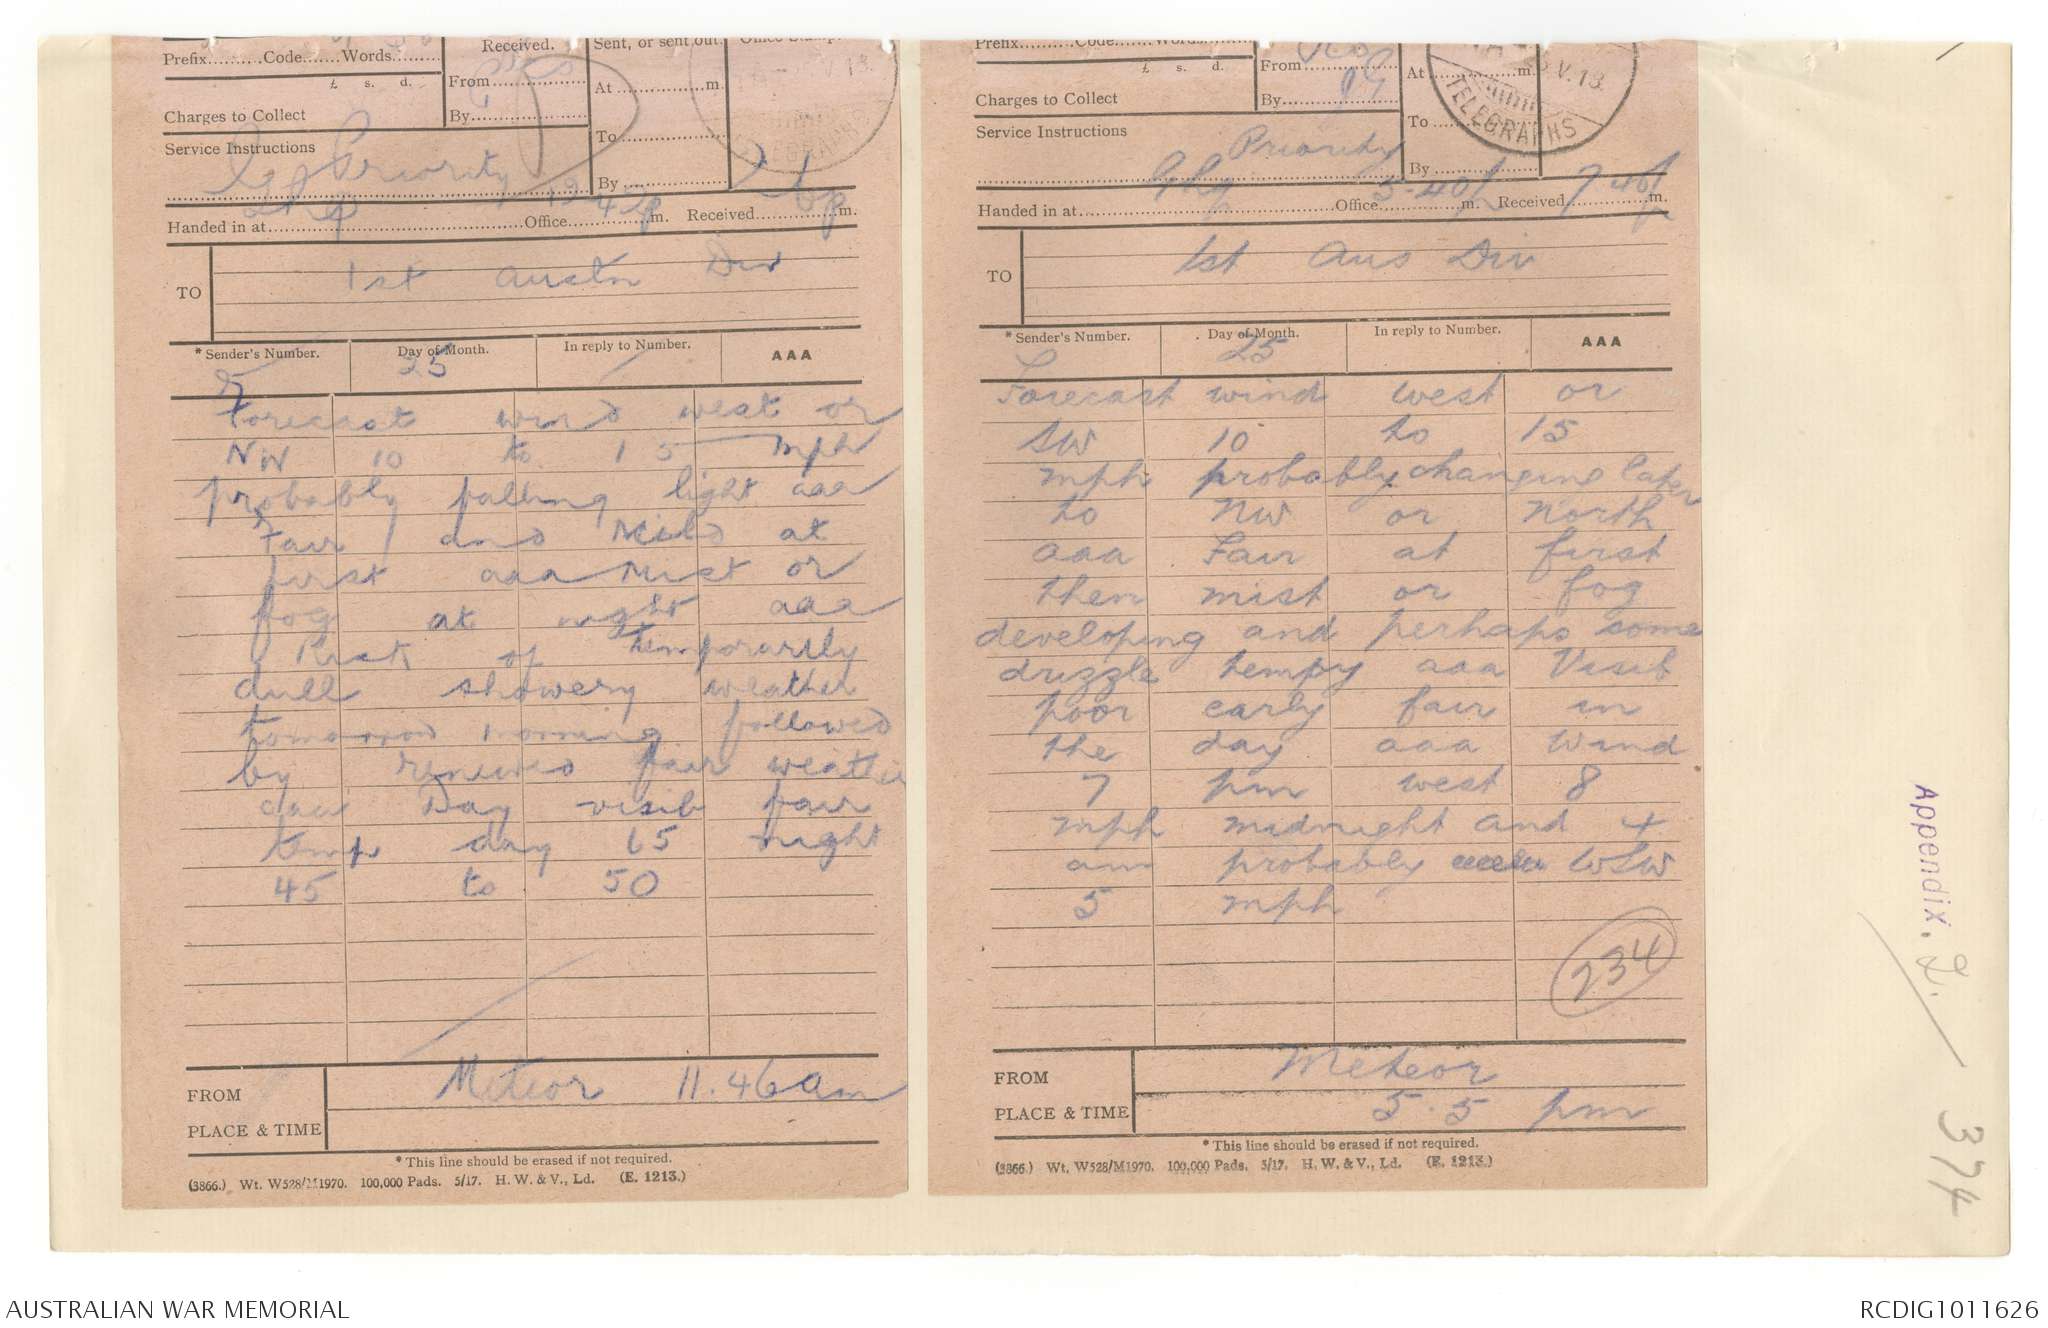 Prefix..........Code.......Words..........
Received.
Sent, or sent out.
Office Stamp.
£ s. d.
From
At ...............m.
Charges to Collect
By
To
Service Instructions
Priority
By
Handed in at..........Office..........m. Received..........m.
TO
1st Austn Div
* Sender's Number.
Day of Month.
In reply to Number.
AAA
25
Forecast wind west or
NW 10 to 15 mph
probably falling light aaa
Fair and Mild at
first aaa Mist or
fog at night aaa
Risk of temporarily
dull showery weather
tomorrow morning followed
by renewed fair weather
aaa Day visib fair
temp day 65 night
45 to 50
FROM
Meteor 11.46am
PLACE & TIME
* This line should be erased if not required.
(3866.) Wt. W528/M1970. 100,000 Pads. 5/17. H. W. & V., Ld. (E. 1213.)
Prefix..........Code.......Words..........
£ s. d.
From
At ...............m.
V.18
TELEGRAPHS
Charges to Collect
By
To
Service Instructions
Priority
By
Handed in at..........Office 5-40p m. Received 7 40p m.
TO
1st Aus Div
* Sender's Number.
Day of Month.
In reply to Number.
AAA
25
Forecast wind west or
SW 10 to 15
mph probably changing later
to NW or North
aaa Fair at first
then mist or fog
developing and perhaps some
drizzle tempy aaa Visib
poor early fair in
the day aaa Wind
7 pm west 8
mph midnight and 4
am probably WSW
5 mph
234
FROM
Meteor
PLACE & TIME
5.5 pm
* This line should be erased if not required.
(3866.) Wt. W528/M1970. 100,000 Pads. 5/17. H. W. & V., Ld. (E. 1213.)
Appendix. 2.
374
AUSTRALIAN WAR MEMORIAL
RCDIG1011626